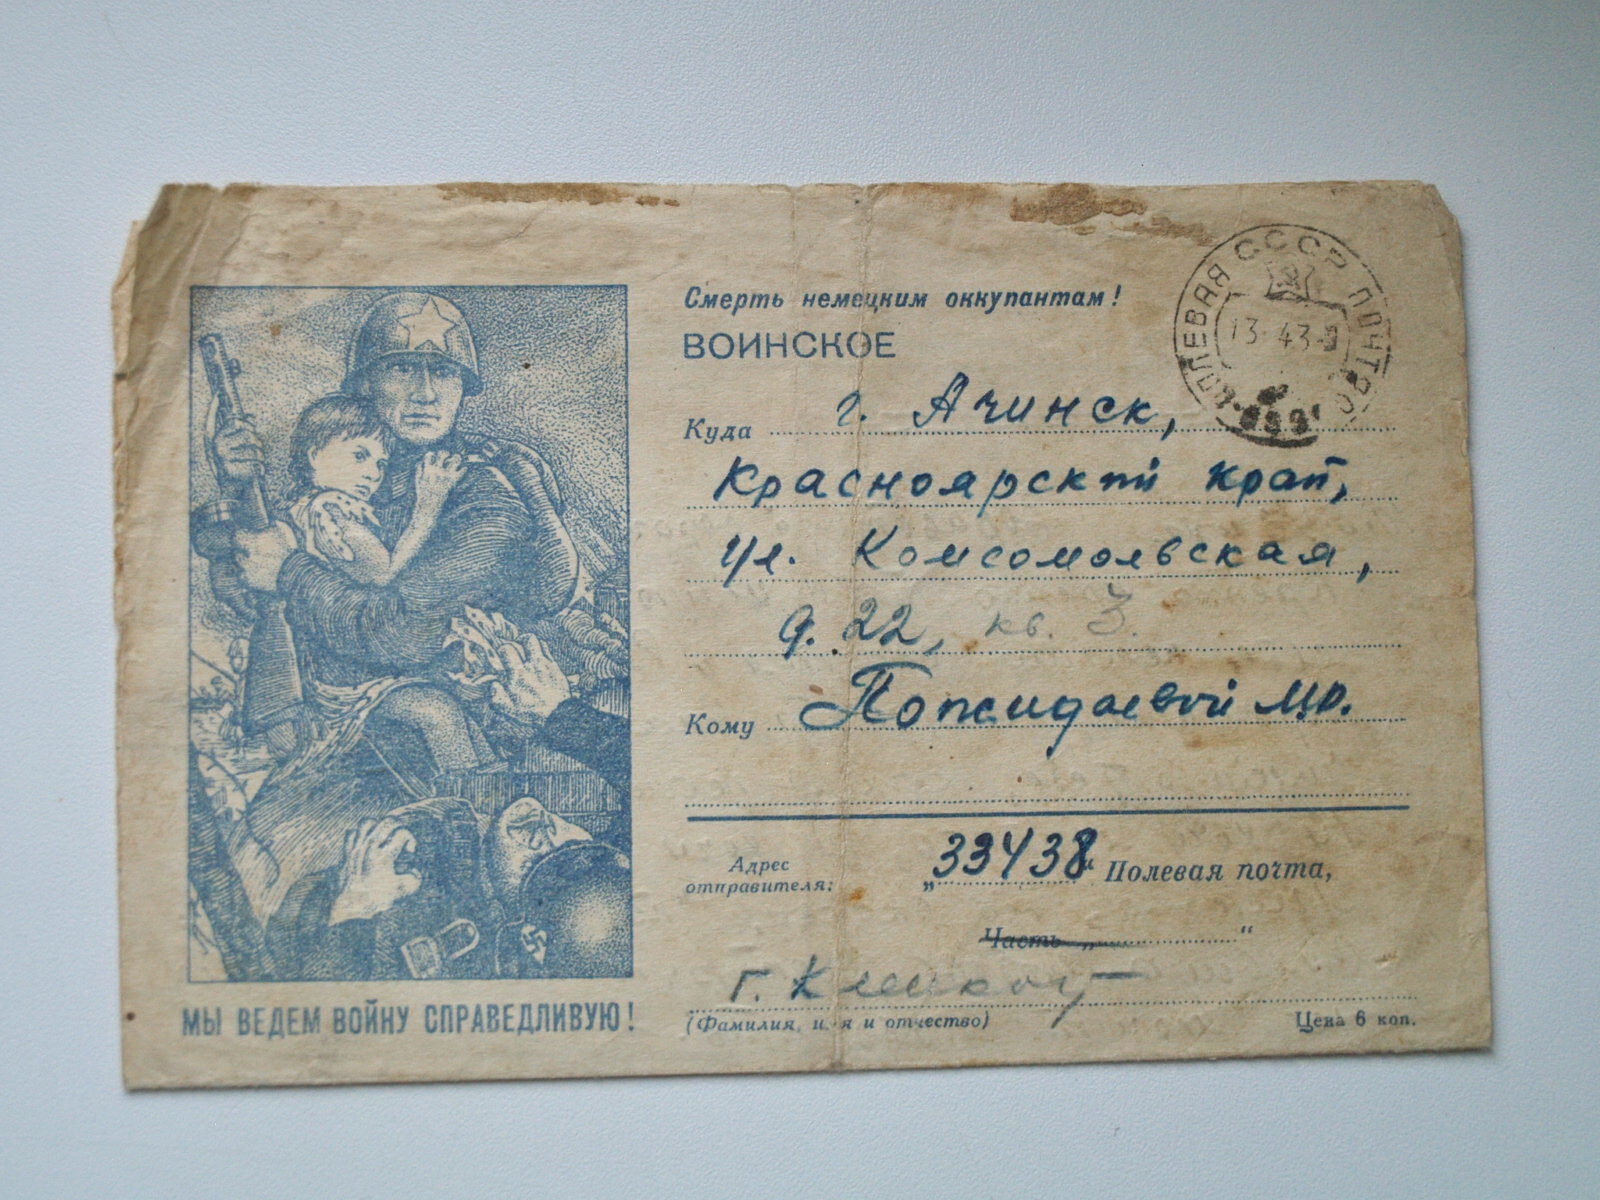 Смерть немецким оккупантам!
ВОИНСКОЕ
ПОЛЕВАЯ СССР ПОЧТА
13 43
Куда г. Ачинск,
Красноярский край,
ул. Комсомольская,
д. 22, кв. 3.
Кому Пожидаевой
Адрес
отправителя: „33438“ Полевая почта,
Часть „ “
Г.
(Фамилия, и я и отчество) Цена 6 коп.
МЫ ВЕДЕМ ВОЙНУ СПРАВЕДЛИВУЮ!